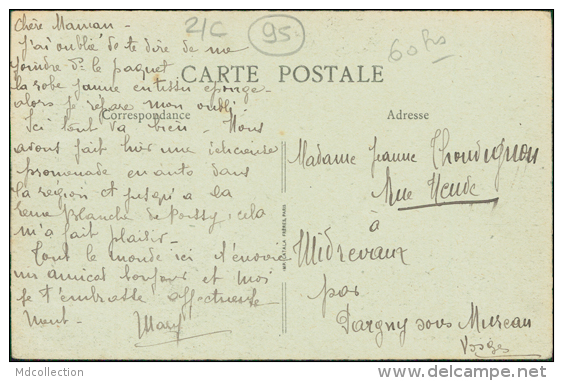 Chère Maman -
J'ai oublié de te dire de me
joindre ds le paquet
la robe jaune en tissu éponge -
alors je répare mon oubli -
Ici tout va bien - Nous
avons fait hier une délicieuse
promenade en auto dans
la région et jusqu'à la
Reine Blanche de Poissy, cela
m'a fait plaisir -
Tout le monde ici t'envoie
un amical bonjour et moi
je t'embrasse affectueuse-
ment - Mary
2/C
95
60 frs
CARTE POSTALE
Correspondance
Adresse
Madame Jeanne
Rue
à
Midrevaux
par
Pargny sous Mureau
Vosges
Mdcollection
www.delcampe.net